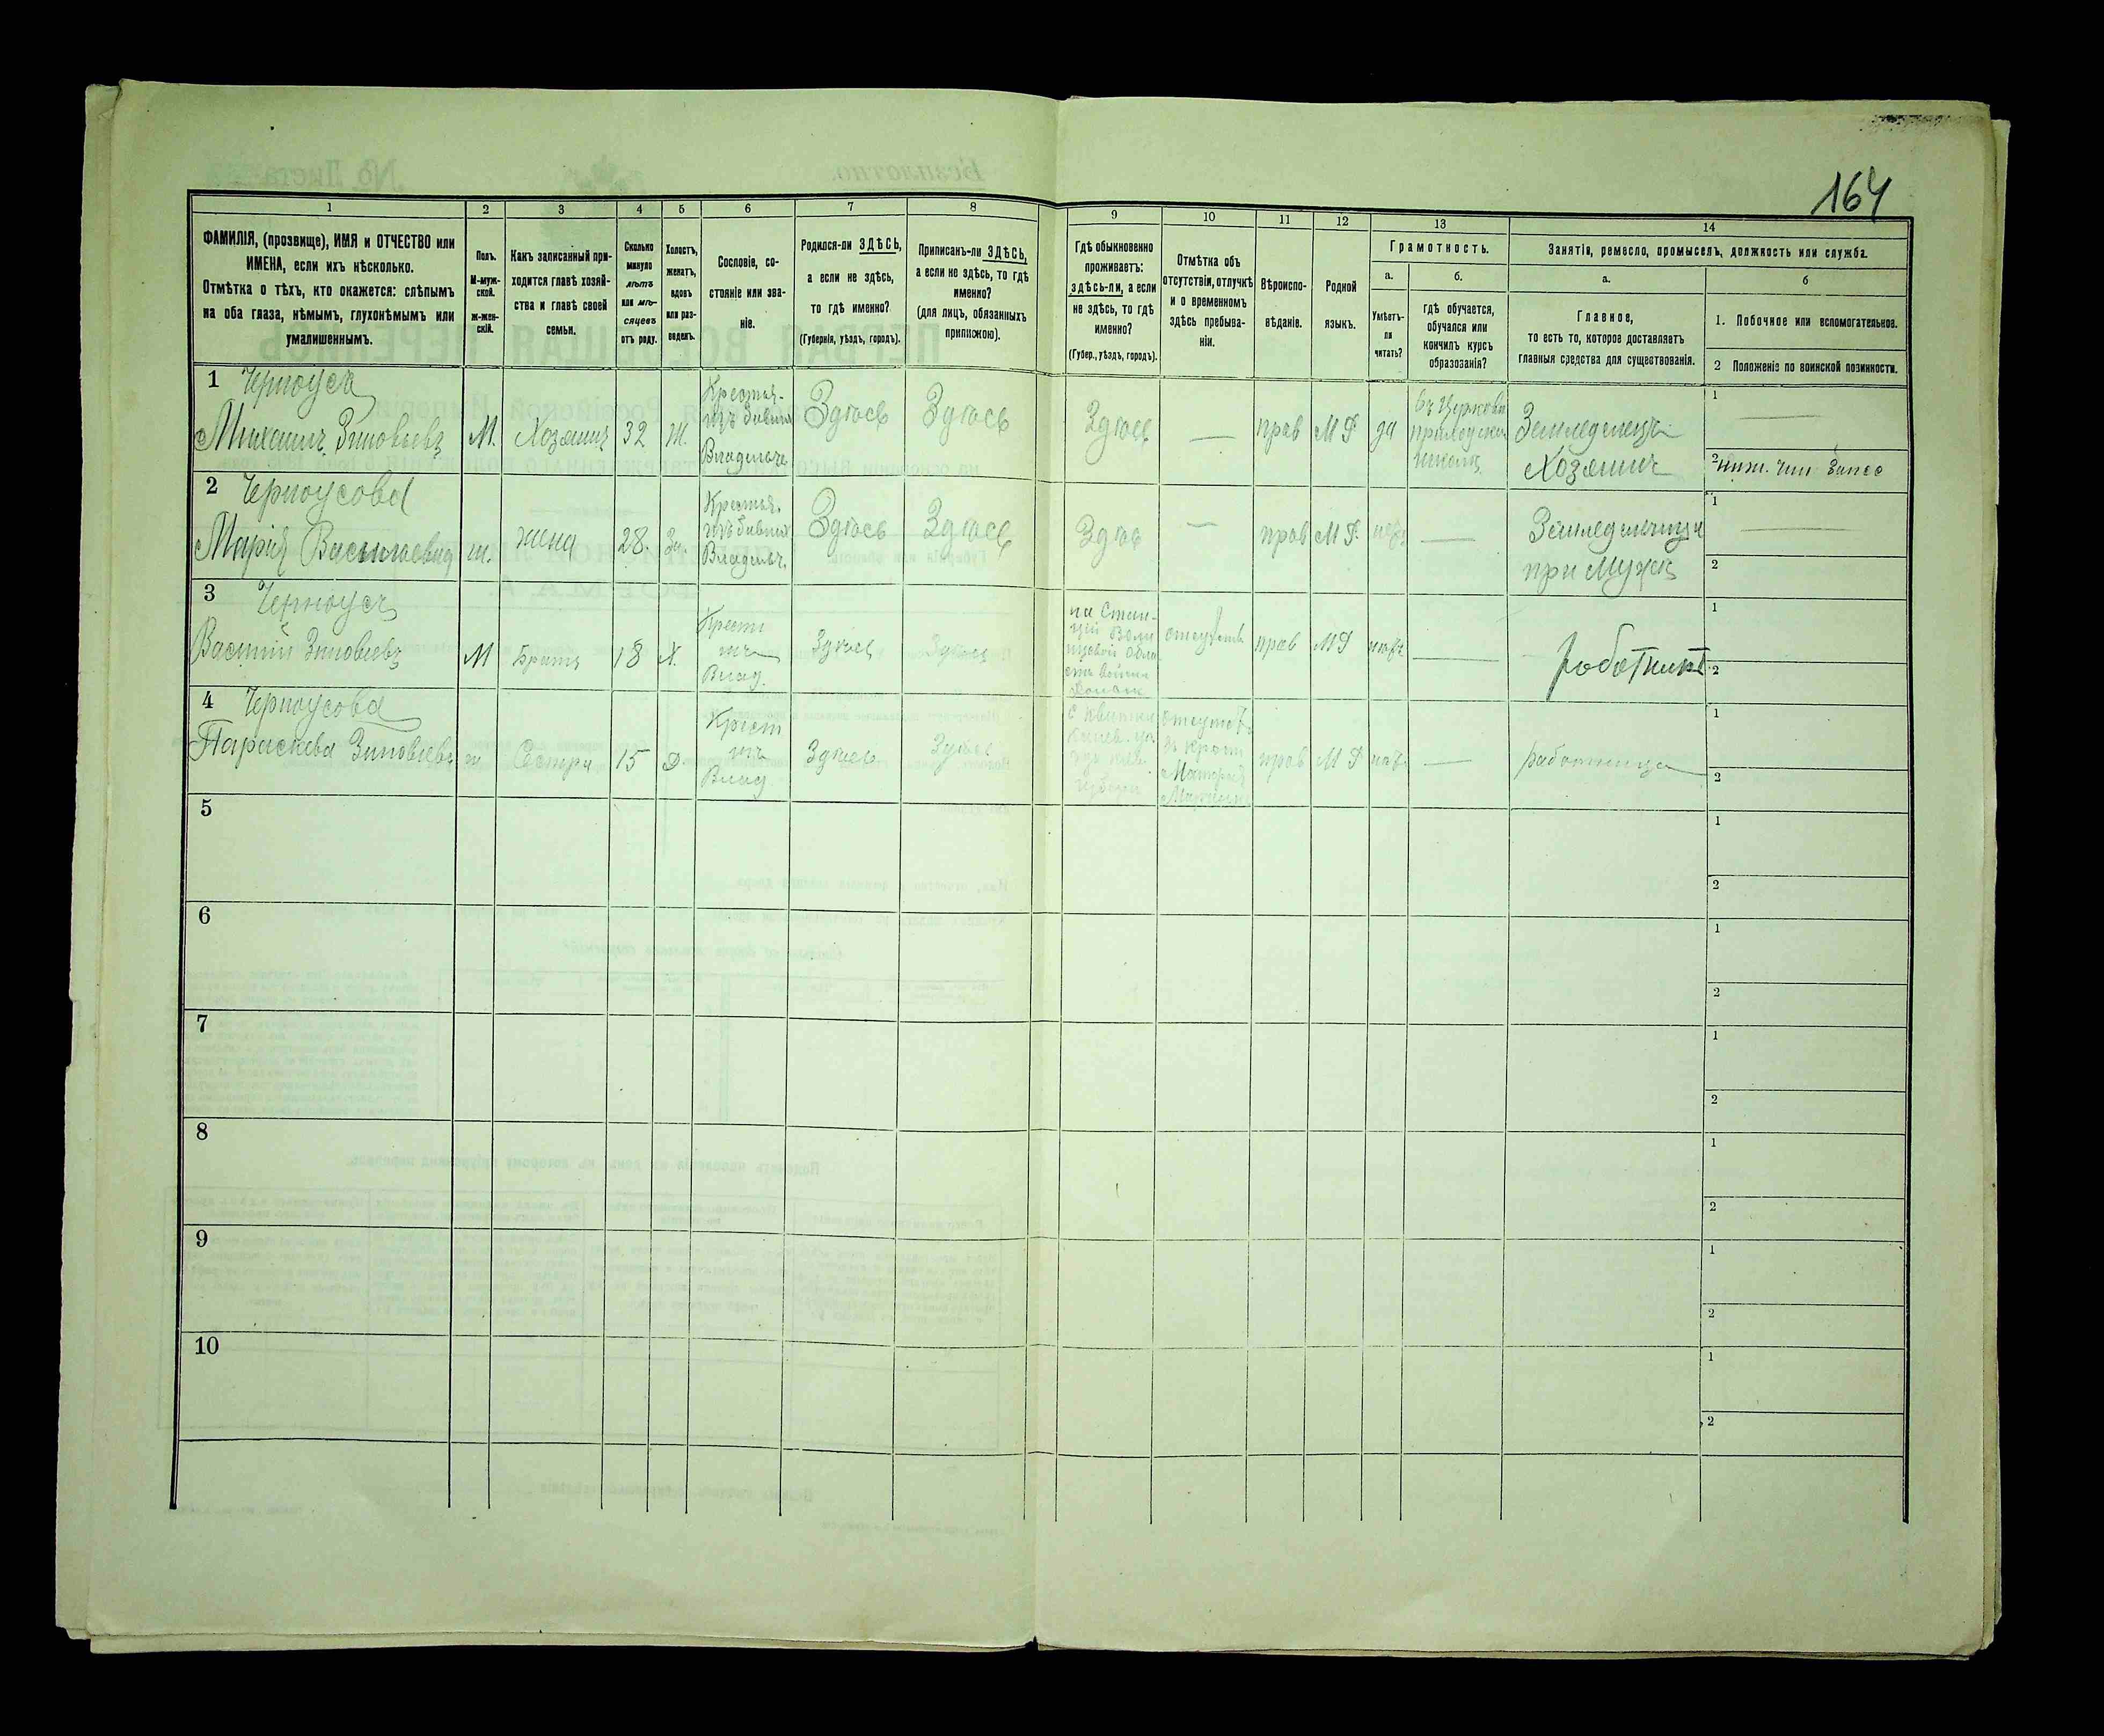 164
1 2 3 4 5 6 7 8 9 10 11 12 13 14
ФАМИЛІЯ, (прозвище), ИМЯ и ОТЧЕСТВО или
ИМЕНА, если ихъ нѣсколько.
Отмѣтка о тѣхъ, кто окажется: слѣпымъ
на оба глаза, нѣмымъ, глухонѣмымъ или
умалишеннымъ.
Полъ.
М-муж-
ской.
ж-жен-
скій.
Какъ записанный при-
ходится главѣ хозяй-
ства и главѣ своей
семьи.
Сколько
минуло
лѣтъ
или мѣ-
сяцевъ
отъ роду.
Холостъ,
женатъ,
вдовъ
или раз-
веденъ.
Сословіе, со-
стояніе или зва-
ніе.
Родился-ли ЗДѢСЬ,
а если не здѣсь,
то гдѣ именно?
(Губернія, уѣздъ, городъ).
Приписанъ-ли ЗДѢСЬ,
а если не здѣсь, то гдѣ
именно?
(для лицъ, обязанныхъ
припискою).
Гдѣ обыкновенно
проживаетъ:
здѣсь-ли, а если
не здѣсь, то гдѣ
именно?
(Губер., уѣздъ, городъ).
Отмѣтка объ
отсутствіи, отлучкѣ
и о временномъ
здѣсь пребыва-
ніи.
Вѣроиспо-
вѣданіе.
Родной
языкъ.
Грамотность.
а.
Умѣетъ-
ли
читать?
б.
гдѣ обучается,
обучался или
кончилъ курсъ
образованія?
Занятія, ремесло, промыселъ, должность или служба.
а.
Главное,
то есть то, которое доставляетъ
главныя средства для существованія.
б
1. Побочное или вспомогательное.
2 Положеніе по воинской повинности.
1 Черноусъ
Михаилъ Зиновьевъ
М.
Хозяинъ
32
Ж.
Крестья-
нъ бывш
Владельче
Здѣсь
Здѣсь
Здѣсь
—
прав
М Р
да
въ Церковно
приходской
школѣ
Земледелецъ
Хозяинъ
1 —
2 нижн. чин запас
2 Черноусова
Мария Васильевна
ж.
жена
28
За.
Крестья.
нъ бывш
Владельч.
Здѣсь
Здѣсь
Здѣсь
—
прав
М Р.
нѣтъ
—
Земледелица
при Мужѣ
1 —
2
3 Черноусъ
Василий Зиновьевъ
М
Братъ
18
Х.
Крест
нъ
Влад.
Здѣсь
Здѣсь
на Стан-
ціи
отсутств
прав
М Р
нѣтъ
—
работникъ
1
2
4 Черноусова
Параскева Зиновьева
ж
Сестра
15
Д.
Крест
нъ
Влад.
Здѣсь
Здѣсь
отсутств
прав
М Р
нѣтъ
—
работница
1
2
5
1
2
6
1
2
7
1
2
8
1
2
9
1
2
10
1
2